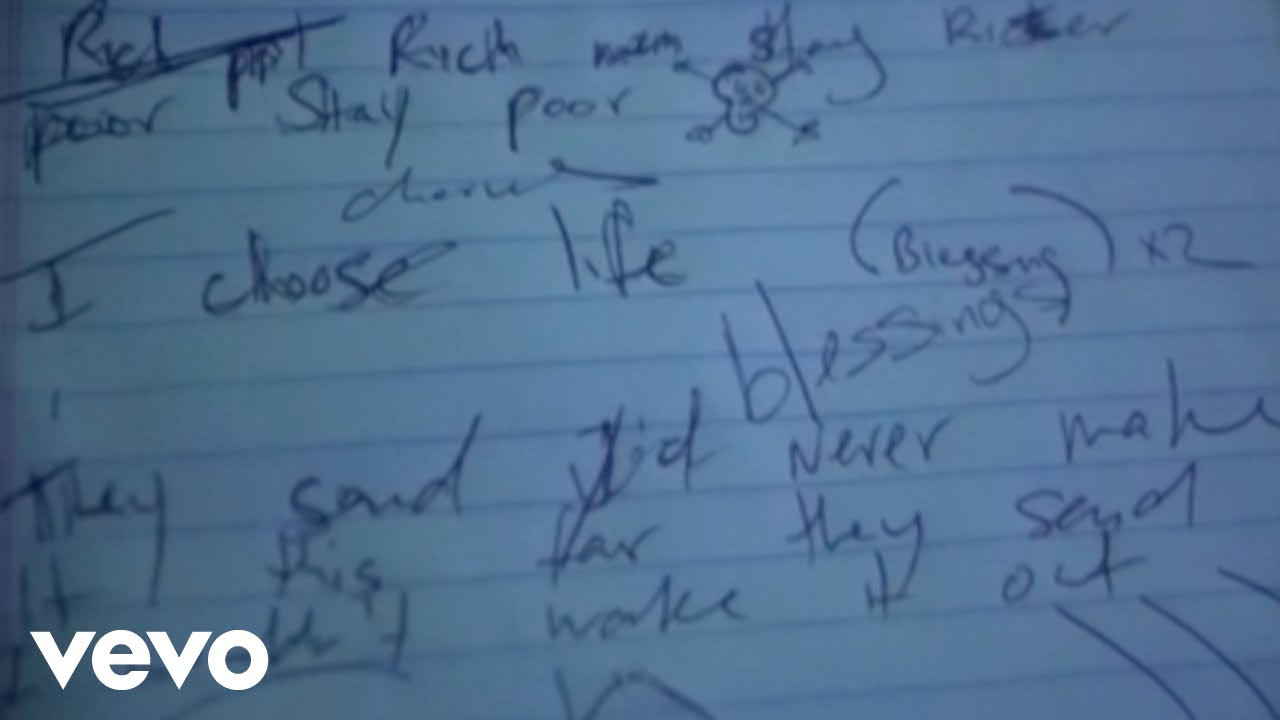 Rich men stay Richer
poor Stay poor
chorus
I choose life (Blessing) x2
blessings
They said I'd Never make
it this far they said
I didn't make it out
vevo